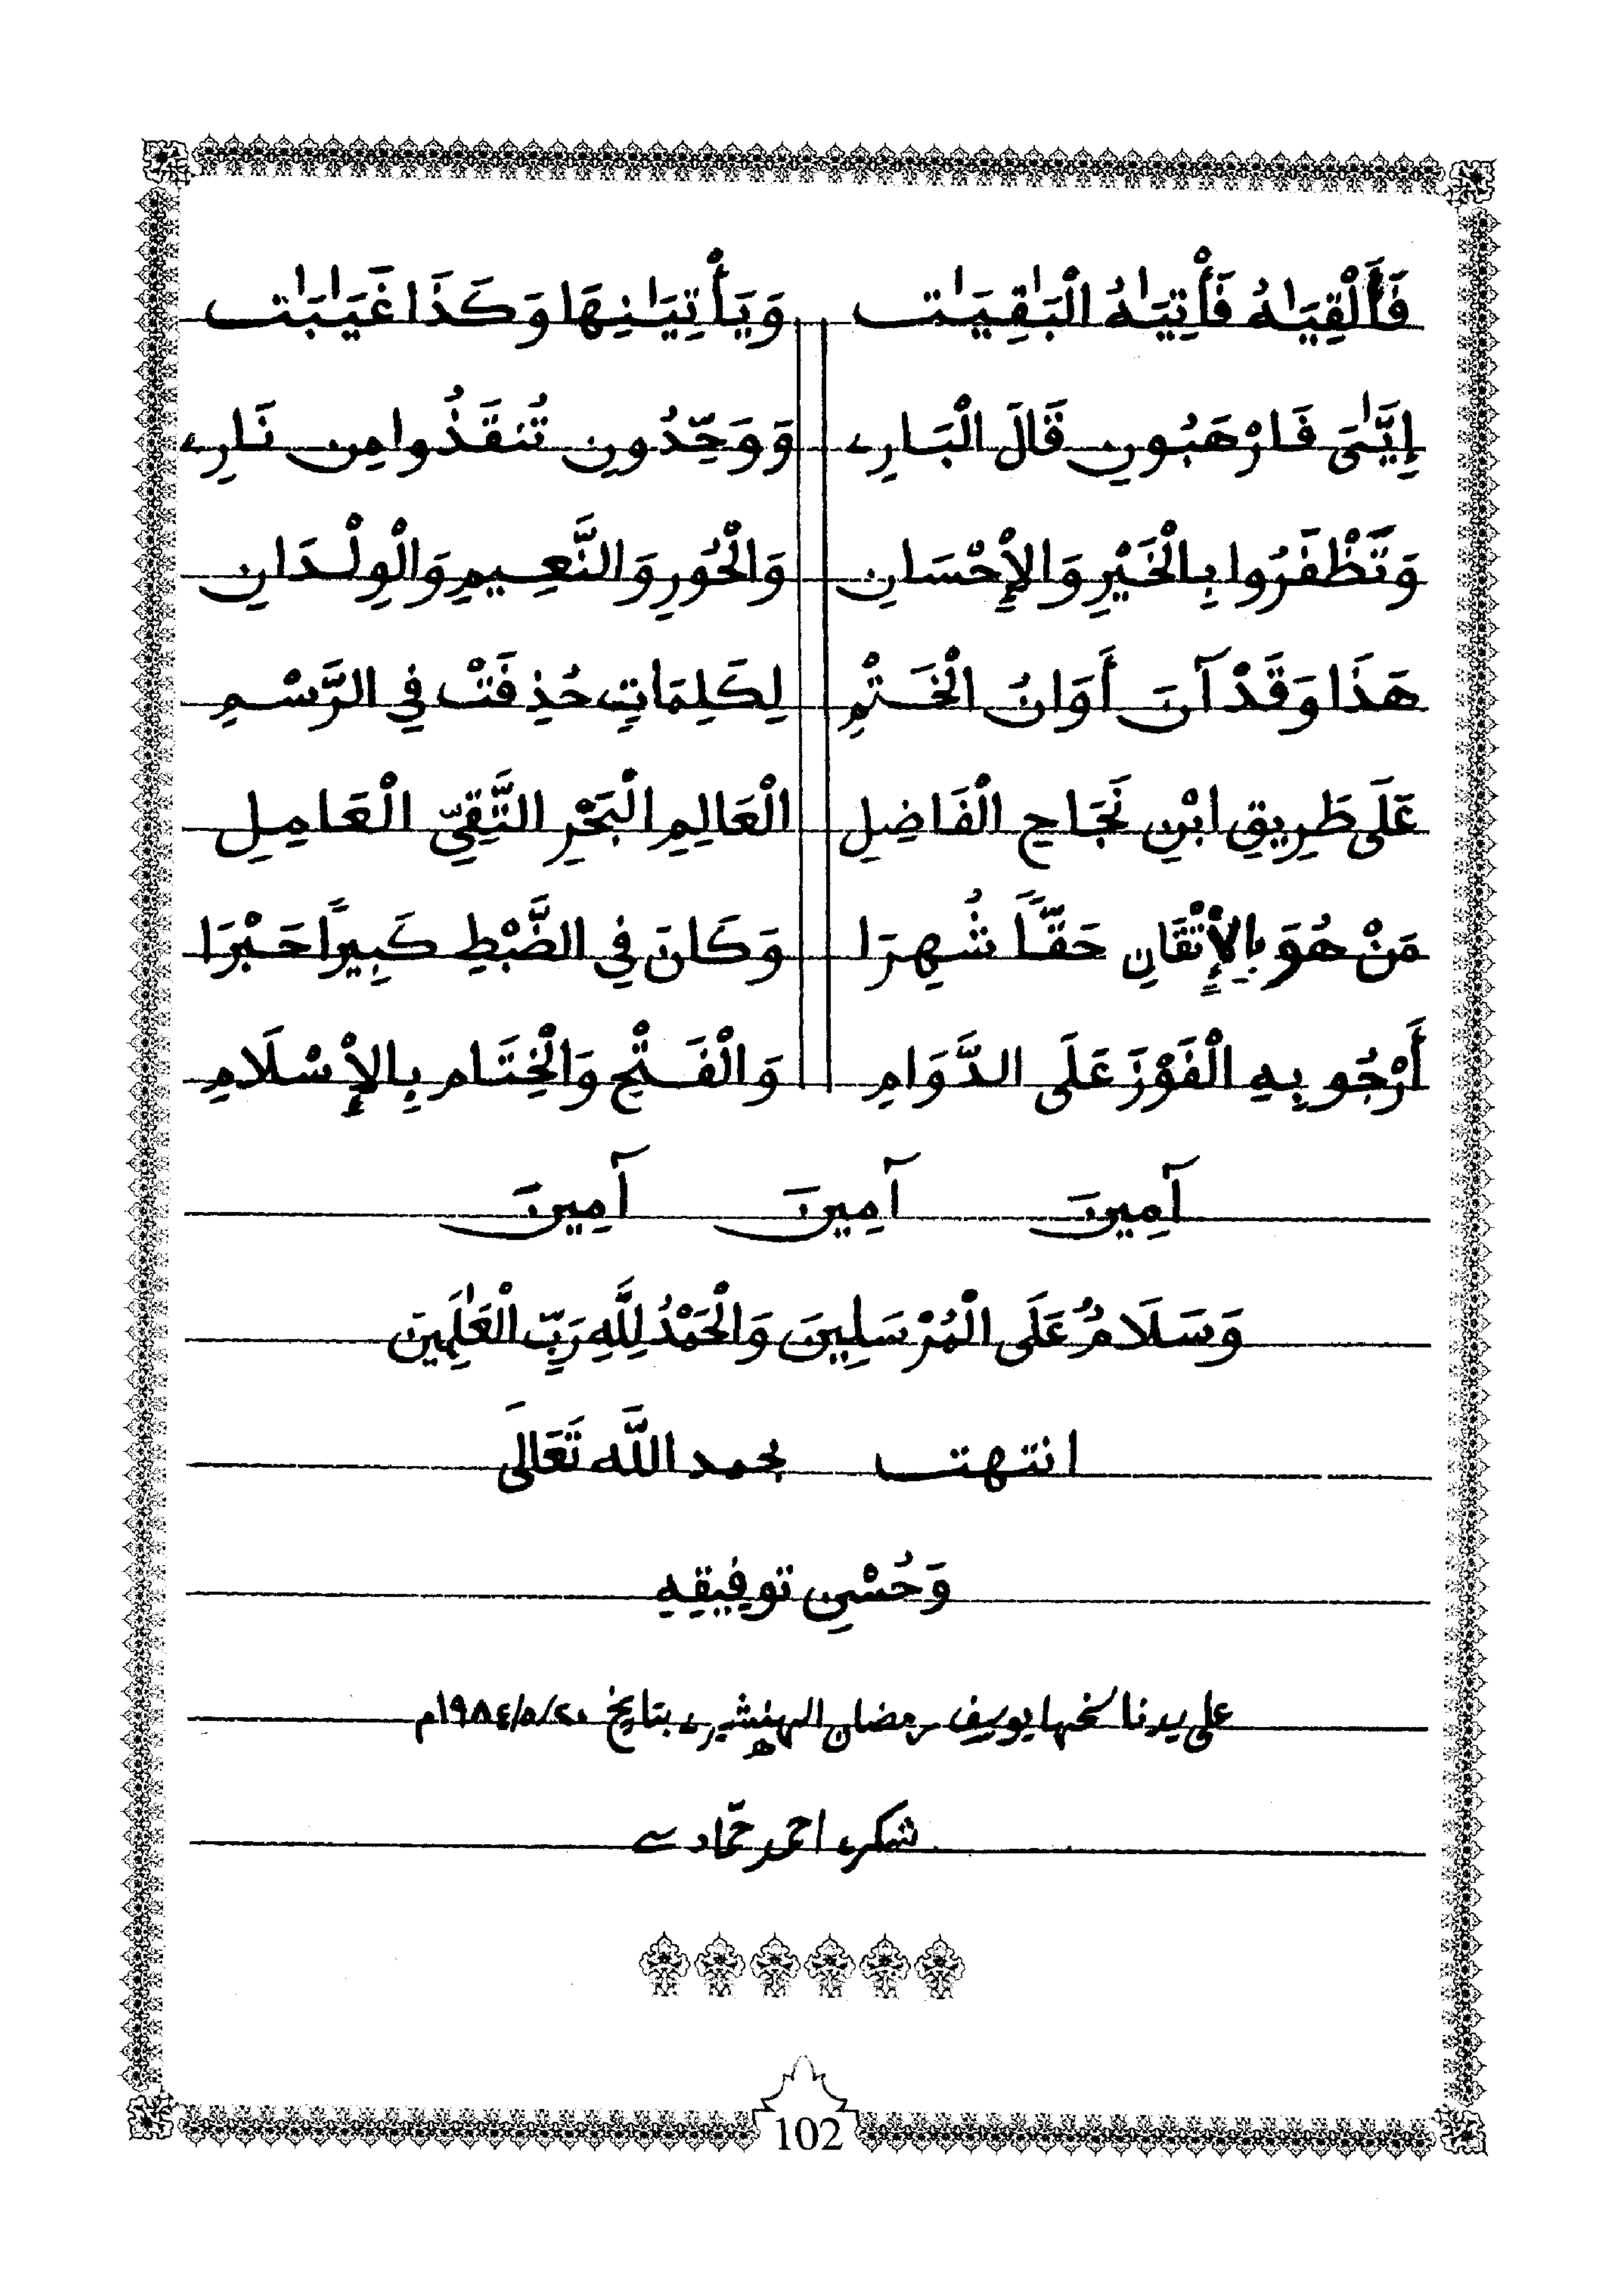 فَأَلْقِيَٰهُ فَأْتِيَٰهُ الْبَٰقِيَٰت وَيَأْتِيَٰنِهَا وَكَذَا غَيَٰبَٰت
إِيَّٰىَ فَارْهَبُونِ قَالَ الْبَارِي وَوَحِّدُونِ تُنقَذُوا مِن نَارِي
وَتَظْفَرُوا بِالْخَيْرِ وَالْإِحْسَانِ وَالْحُورِ وَالنَّعِيمِ وَالْوِلْدَانِ
هَذَا وَقَدْ آنَ أَوَانُ الْخَتْمِ لِكَلِمَاتٍ حُذِفَتْ فِي الرَّسْمِ
عَلَى طَرِيقِ ابْنِ نَجَاحِ الْفَاضِلِ الْعَالِمِ الْبَحْرِ التَّقِيِّ الْعَامِلِ
مَنْ هُوَ بِالْإِتْقَانِ حَقّاً شُهِرَا وَكَانَ فِي الضَّبْطِ كَبِيراً حَبْرَا
أَرْجُو بِهِ الْفَوْزَ عَلَى الدَّوَامِ وَالْفَتْحِ وَالْخِتَامِ بِالْإِسْلَامِ
آمِينَ آمِينَ آمِينَ
وَسَلَامٌ عَلَى الْمُرْسَلِينَ وَالْحَمْدُ لِلَّهِ رَبِّ الْعَٰلَمِينَ
انتهت بحمد اللَّه تَعَالَى
وَحُسْنِ توفِيقِهِ
على يد ناسخها يوسف رمضان الهنشيري بتاريخ ٢٠/٥/١٩٨٤م
شكري احمد حمادي
102